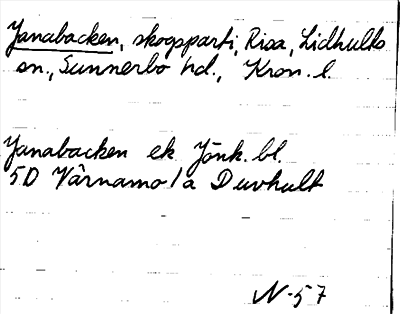 Janabacken, skogsparti, Risa, Lidhults
sn., Sunnerbo hd., Kron. l.
Janabacken ek Jönk. bl.
5D Värnamo/a Duvhult
N-57